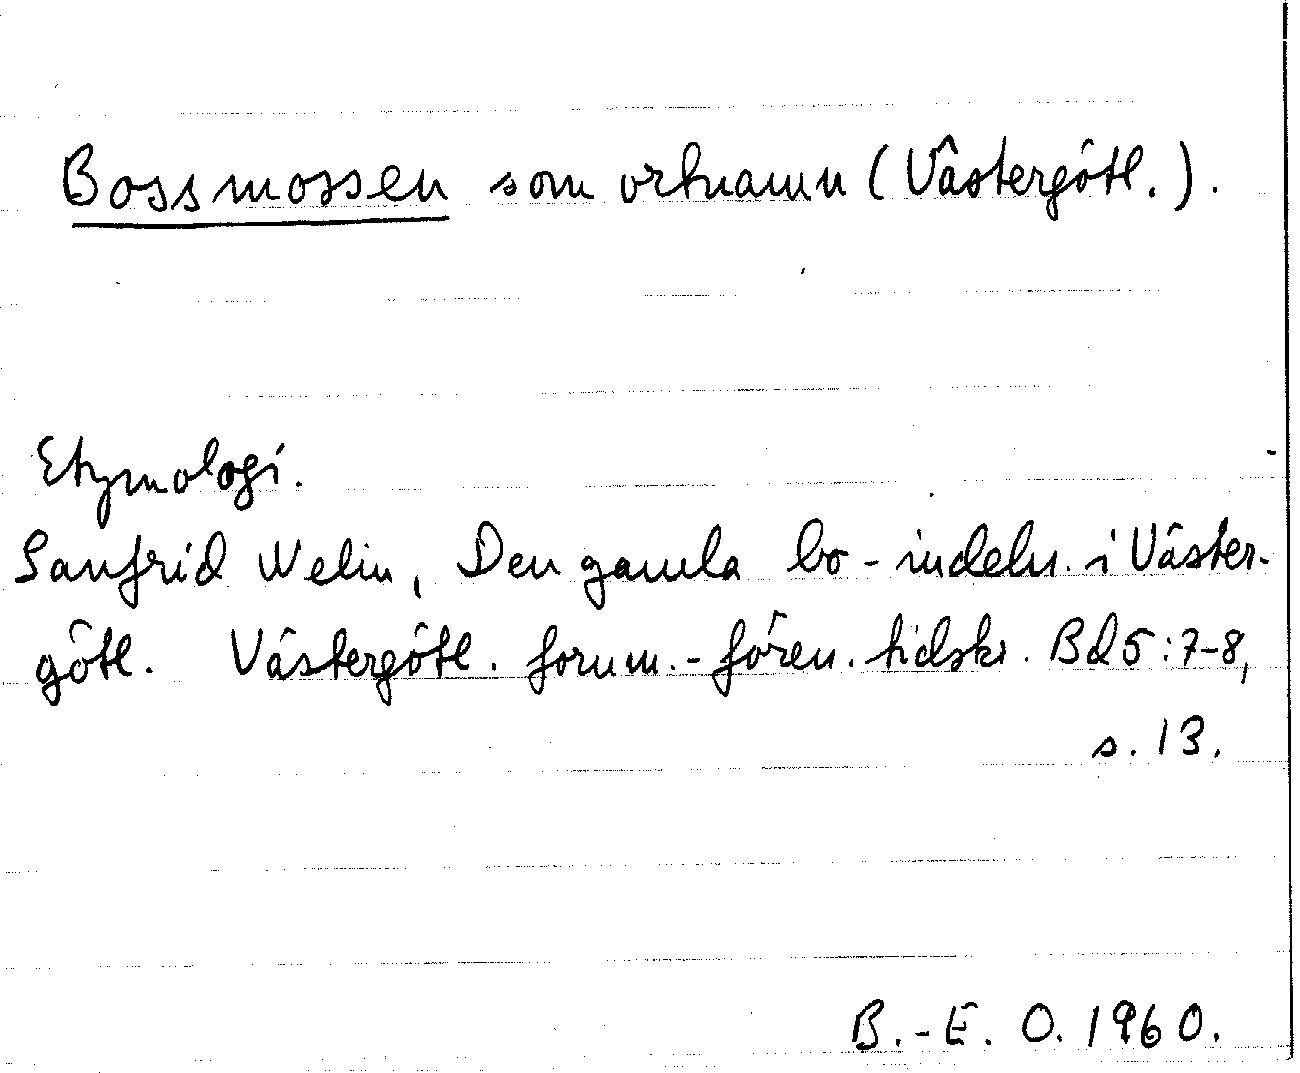 Bossmossen som ortnamn (Västergötl.).
Etymologi.
Sanfrid Welin, Den gamla bo-indeln. i Väster-
götl. Västergötl. fornm.-fören. tidskr. Bd 5:7-8,
s. 13.
B.-E. O. 1960.